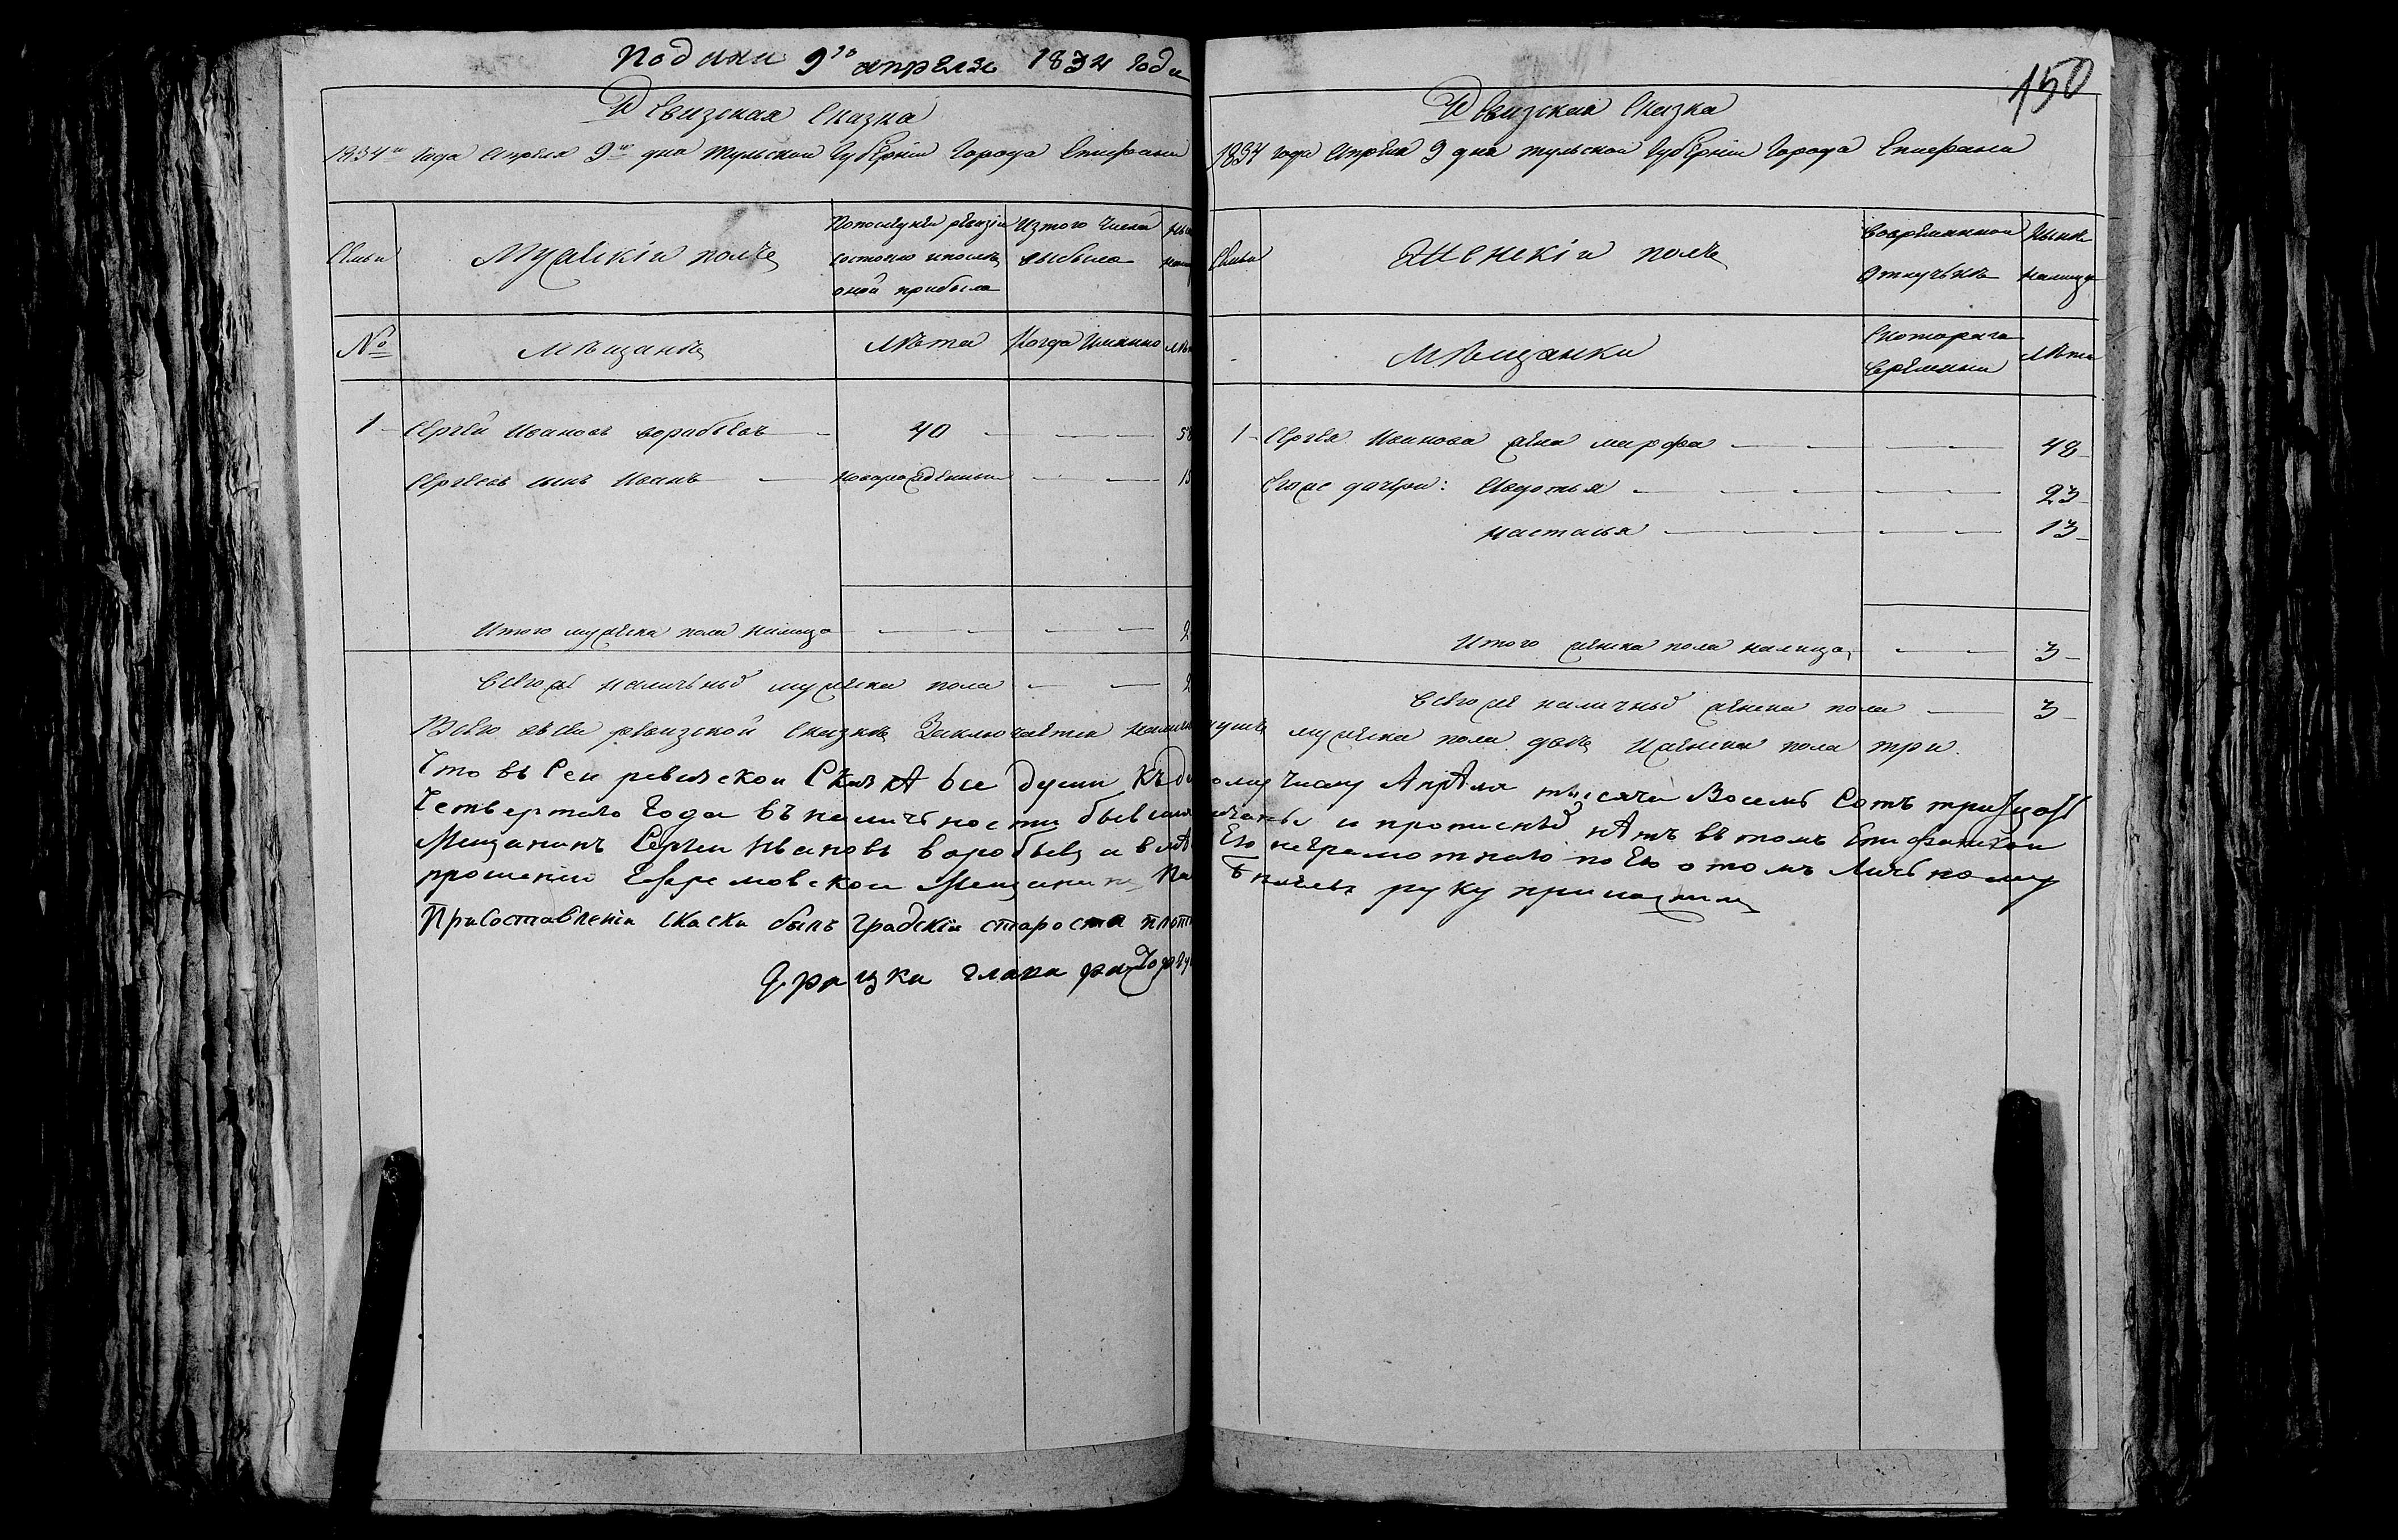 Подана 9го апреля 1834 года
Ревизская Сказка
1834го Года Апреля 9го дня Тульской Губернiи Города Епифани
Семьи
Мужескiй полъ
Попоследней ревизiи
состояло ипосле
оной прибыло
Изтого числа
выбыло
№
Мѣщанѣ
Лѣта
Когда Имянно
1 Сергей Ивановъ воробьевъ 40
Сергеевъ сынъ Иванъ Новорожденный
Итого мужеска пола налицо
Всегоже наличныхъ мужеска пола
150
Ревизская Сказка
1834 года Апреля 9 дня тульской Губернiи Города Епифани
Семьи
Женскiй полъ
Вовременной
Отлучкѣ
Нынѣ
налицо
Мѣщанки
Скотораго
времяни
Лѣта
1 Сергея Иванова жена марфа 48
Ихже дочери: Авдотья 23
настасья 13
Итого женска пола налицо 3
Всегоже наличныхъ женска пола 3
Всего въсей ревизской Сказке Заключается душъ мужеска пола двѣ Иженска пола три
Что въ Сей ревизской Скаскѣ все души Къ числу Апрѣля тысяча Восемь Сотъ тридцать
Четвертаго Года въ наличности и прописныхъ нѣтъ въ томъ Епифанской
Мещанинъ Сергей Ивановъ воробьевъ а вмѣ Его неграмотнаго по Его о томъ Личному
прошенiю Ефремовской Мещанинъ руку приложилъ
Присоставленiи скаски былъ градскiй староста